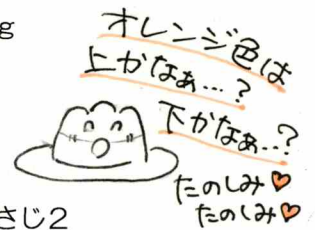 g
オレンジ色は
上かなぁ…?
下かなぁ…?
たのしみ♥
たのしみ♥
さじ2